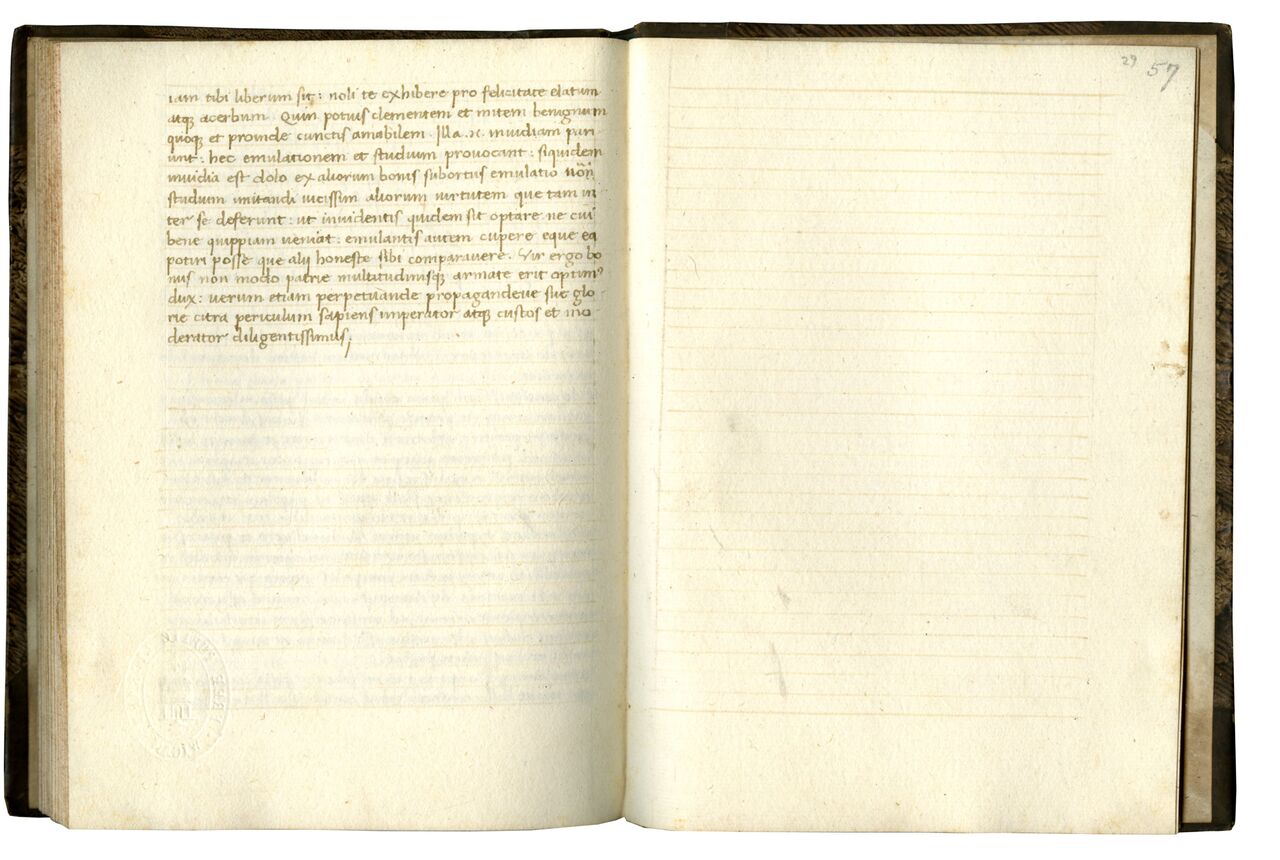 iam tibi liberum sit: noli te exhibere pro felicitate elatum
atqȝ acerbum. Quin potius clementem et mitem benignum
quoqȝ et proinde cunctis amabilem. Illa .n. inuidiam pari-
unt: hec emulationem et studium provocant: siquidem
inuidia est dolo ex aliorum bonis subortus emulatio
studium imitandi uicissim aliorum uirtutem que tam in
ter se deferunt: ut inuidentis quidem sit optare ne cui
bene quippiam veniat: emulantis autem cupere eque ea
potiri posse que alij honeste sibi comparauere. Vir ergo bo
nus non modo patrie multitudinisqȝ armate erit optimꝰ
dux: uerum etiam perpetuande propagandeue sue glo-
rie citra periculum sapiens imperator atqȝ custos et mo
derator diligentissimus;
29 57